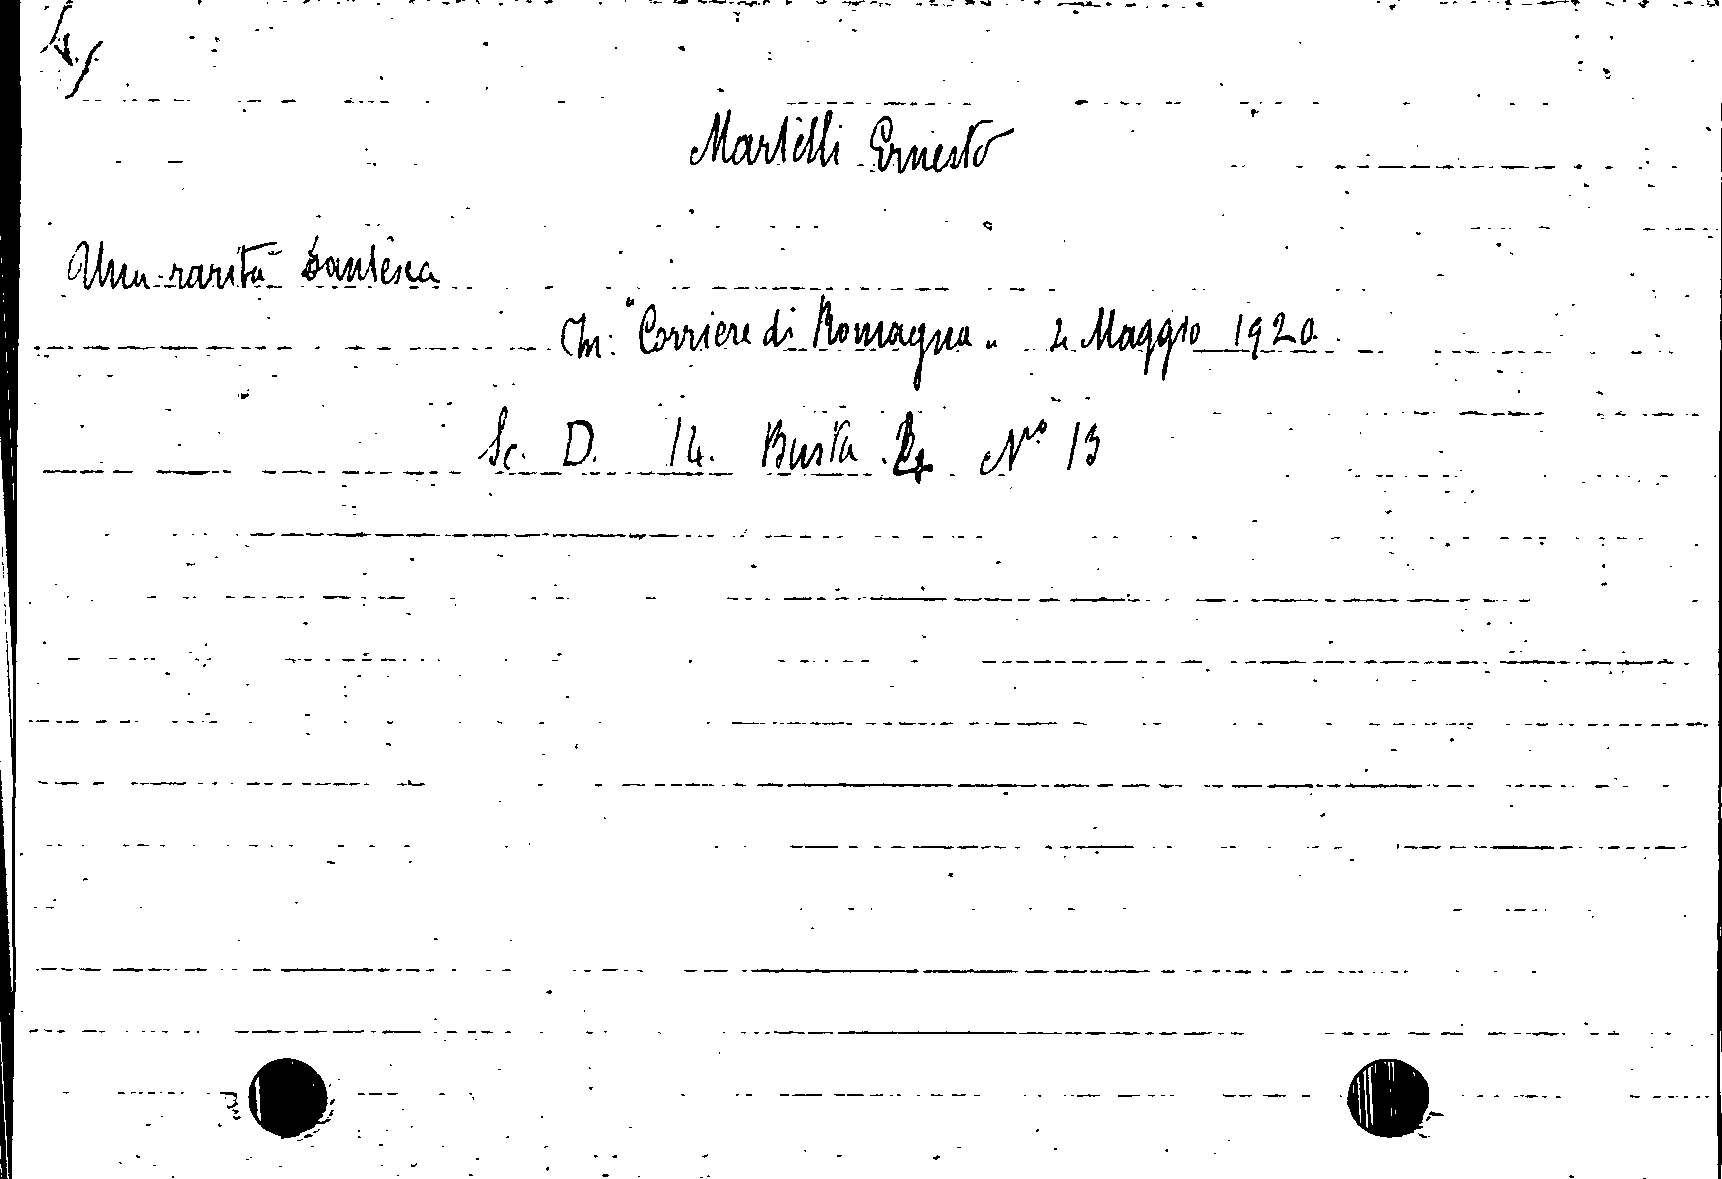 Martelli Ernesto
Una rarità dantesca
In: "Corriere di Romagna" 4 Maggio 1920
Sc. D. 14. Busta N° 13